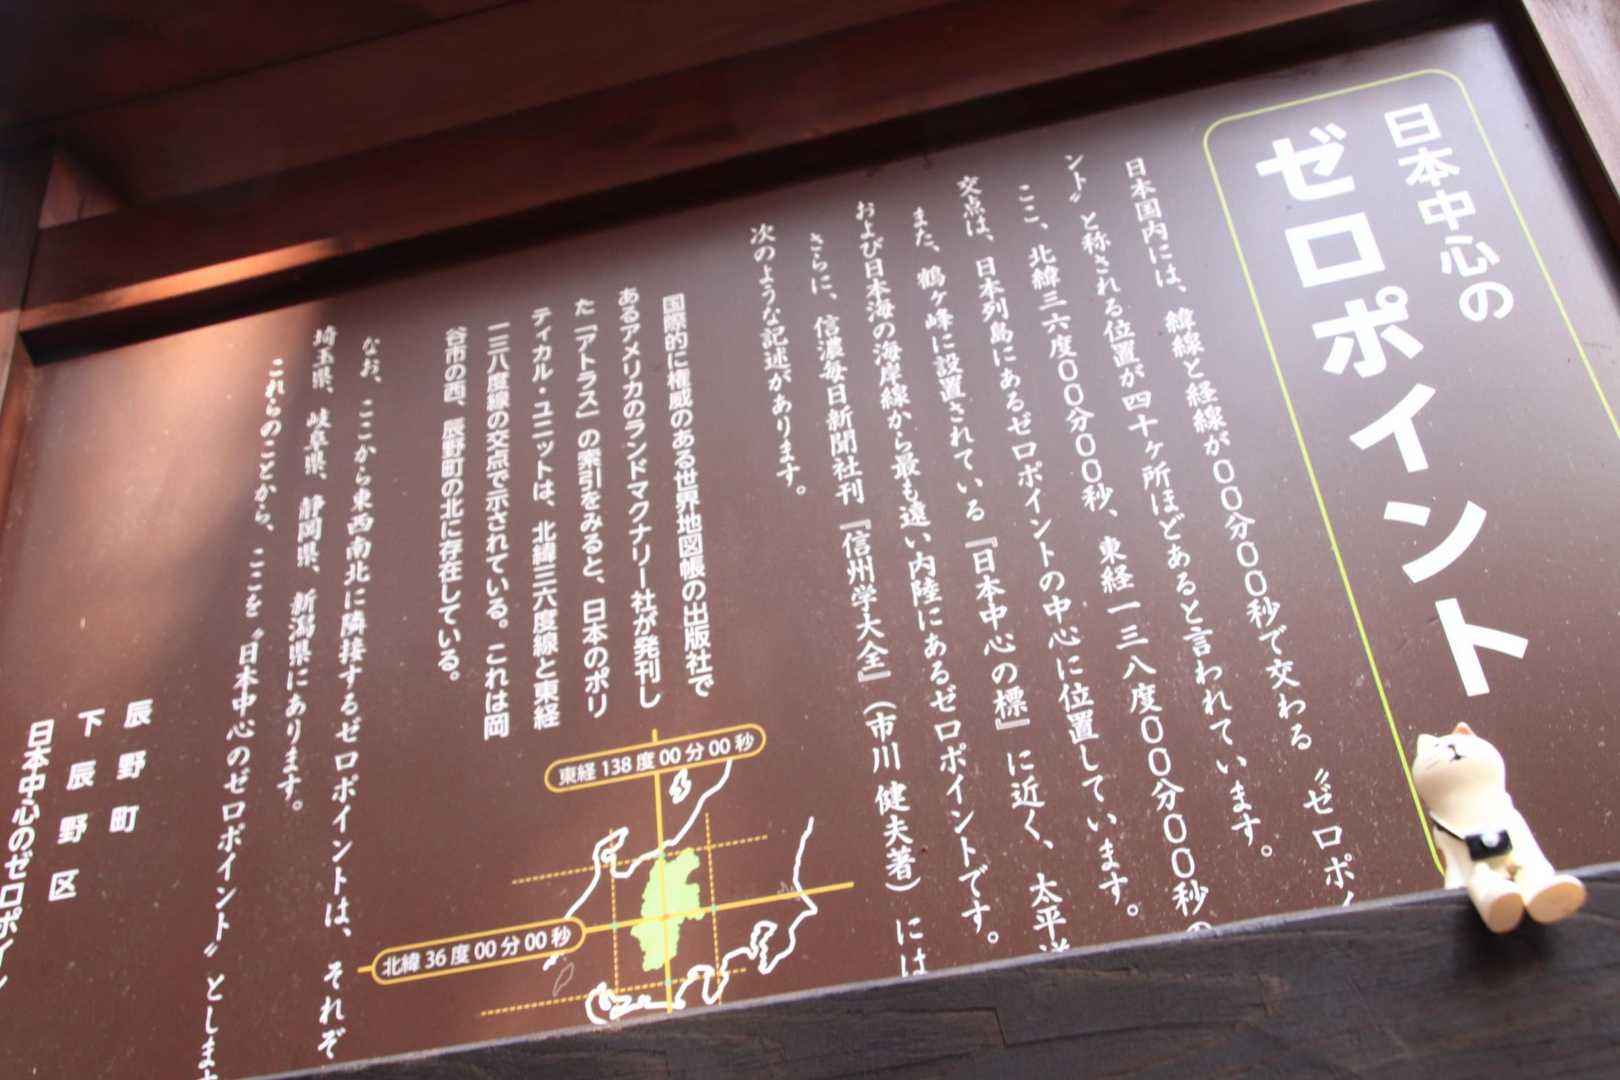 日本中心の
ゼロポイント
日本国内には、緯線と経線が〇〇分〇〇秒で交わる〝ゼロポイ
ント〟と称される位置が四十ヶ所ほどあると言われています。
ここ、北緯三六度〇〇分〇〇秒、東経一三八度〇〇分〇〇秒の
交点は、日本列島にあるゼロポイントの中心に位置しています。
また、鶴ヶ峰に設置されている『日本中心の標』に近く、太平洋
および日本海の海岸線から最も遠い内陸にあるゼロポイントです。
さらに、信濃毎日新聞社刊『信州学大全』(市川健夫著)には
次のような記述があります。
国際的に権威のある世界地図帳の出版社で
あるアメリカのランドマクナリー社が発刊し
た「アトラス」の索引をみると、日本のポリ
ティカル・ユニットは、北緯三六度線と東経
一三八度線の交点で示されている。これは岡
谷市の西、辰野町の北に存在している。
東経138度00分00秒
北緯36度00分00秒
なお、ここから東西南北に隣接するゼロポイントは、それぞ
埼玉県、岐阜県、静岡県、新潟県にあります。
これらのことから、ここを〝日本中心のゼロポイント〟とします
辰野町
下辰野区
日本中心のゼロポイン